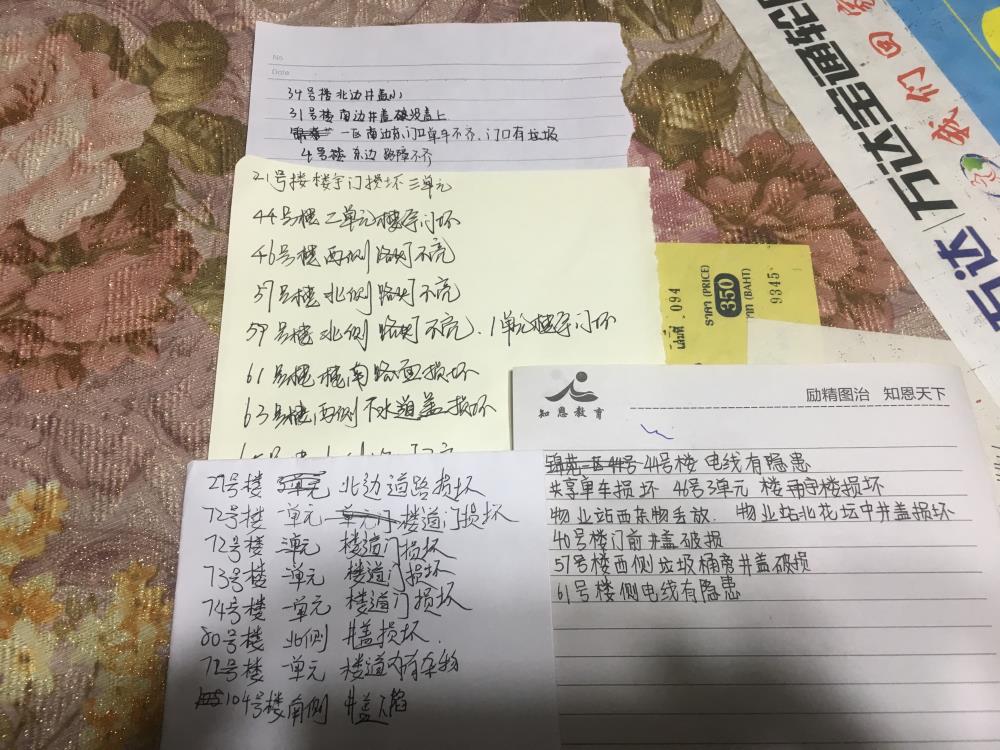 No
Date
34号楼北边井盖小
31号楼南边井盖破没盖上
一区南边东门口单车不齐、门口有垃圾
4号楼东边路障不齐
21号楼楼宇门损坏三单元
44号楼二单元楼宇门坏
46号楼西侧路灯不亮
57号楼北侧路灯不亮
59号楼北侧路灯不亮、1单元楼宇门坏
61号楼楼南路面损坏
63号楼西侧下水道盖损坏
27号楼 北边道路损坏
72号楼 一单元 楼道门损坏
72号楼 三单元 楼道门损坏
73号楼 一单元 楼道门损坏
74号楼 一单元 楼道门损坏
80号楼 北侧 井盖损坏.
72号楼 一单元 楼道内有杂物
104号楼南侧 井盖塌陷
知恩教育
励精图治 知恩天下
44号楼 电线有隐患
共享单车损坏 46号3单元 楼宇楼损坏
物业站西杂物乱放. 物业站北花坛中井盖损坏
40号楼门前井盖破损
57号楼西侧垃圾桶旁井盖破损
61号楼侧电线有隐患
094
ราคา (PRICE)
350
บาท (BAHT)
9345
万达|万达宝通轮胎
我们回